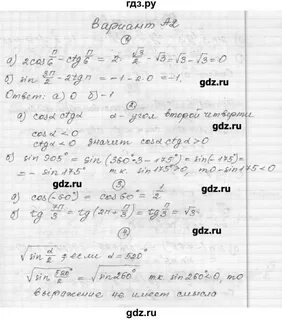 гдз.ру
Вариант А2
①
а) 2cos π/6 − ctg π/6 = 2 · √3/2 − √3 = √3 − √3 = 0
б) sin 3π/2 − 2tgπ = −1 − 2·0 = −1.
Ответ: а) 0 б) −1
②
а) cosα ctgα α − угол второй четверти
cosα < 0
ctgα < 0 значит cosα ctgα > 0
б) sin 905° = sin(360°·3 − 175°) = sin(−175) =
= − sin 175° т.к. sin 175° > 0, то − sin 175 < 0
③
а) cos(−60°) = cos 60° = 1/2
б) tg 7π/3 = tg(2π + π/3) = tg π/3 = √3
④
√sin α/2 если α = 520°
√sin 520°/2 = √sin 260° т.к. sin 260° < 0, то
выражение не имеет смысла